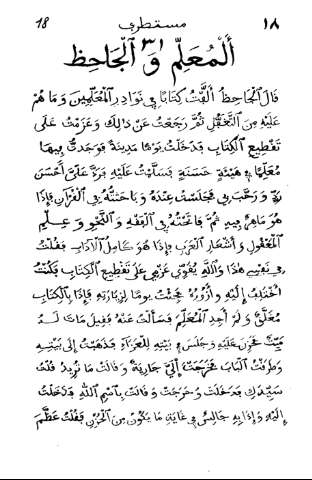 ١٨ مستطرف 18
اَلْمُعَلِّم وَ اَلْجَاحِظ
قَالَ اَلْجَاحِظُ اَلَّفْتُ كِتَابًا فِي نَوَادِرِ اَلْمُعَلِّمِينَ وَمَا هُمْ
عَلَيْهِ مِنَ اَلتَّغَفُّلِ ثُمَّ رَجَعْتُ عَنْ ذَالِكَ وَعَزَمْتُ عَلَى
تَقْطِيعِ اَلْكِتَابِ فَدَخَلْتُ يَوْمًا مَدِينَةً فَوَجَدْتُ فِيهَا
مُعَلِّمًا فِي هَيْئَةٍ حَسَنَةٍ فَسَلَّمْتُ عَلَيْهِ فَرَدَّ عَلَيَّ اَحْسَنَ
رَدٍّ وَرَحَّبَ بِي فَجَلَسْتُ عِنْدَهُ وَبَاحَثْتُهُ فِي اَلْقُرْآنِ فَإِذَا
هُوَ مَاهِرٌ فِيهِ ثُمَّ فَاتَحْتُهُ فِي اَلْفِقْهِ وَ اَلنَّحْوِ وَ عِلْمِ
اَلْمَعْقُولِ وَ أَشْعَارِ اَلْعَرَبِ فَإِذَا هُوَ كَامِلُ اَلْآدَابِ فَقُلْتُ
فِي نَفْسِي هَذَا وَاللَّهِ يُقَوِّي عَزْمِي عَلَى تَقْطِيعِ اَلْكِتَابِ فَكُنْتُ
اَخْتَلِفُ إِلَيْهِ وَ أَزُورُهُ فَجِئْتُ يَوْمًا لِزِيَارَتِهِ فَإِذَا بِالْكِتَابِ
مُغْلَقٌ وَ لَمْ أَجِدِ اَلْمُعَلِّمَ فَسَأَلْتُ عَنْهُ فَقِيلَ مَاتَ لَهُ
مَيِّتٌ فَحَزِنَ عَلَيْهِ وَ جَلَسَ فِي بَيْتِهِ لِلْعَزَاءِ فَذَهَبْتُ إِلَى بَيْتِهِ
وَ طَرَقْتُ اَلْبَابَ فَخَرَجَتْ إِلَيَّ جَارِيَةٌ وَ قَالَتْ مَا تُرِيدُ قُلْتُ
سَيِّدَكِ فَدَخَلَتْ وَ خَرَجَتْ وَ قَالَتْ بِاسْمِ اَللَّهِ فَدَخَلْتُ
إِلَيْهِ وَ إِذَا بِهِ جَالِسٌ فِي غَايَةِ مَا يَكُونُ مِنَ اَلْحُزْنِ فَقُلْتُ عَظَّمَ